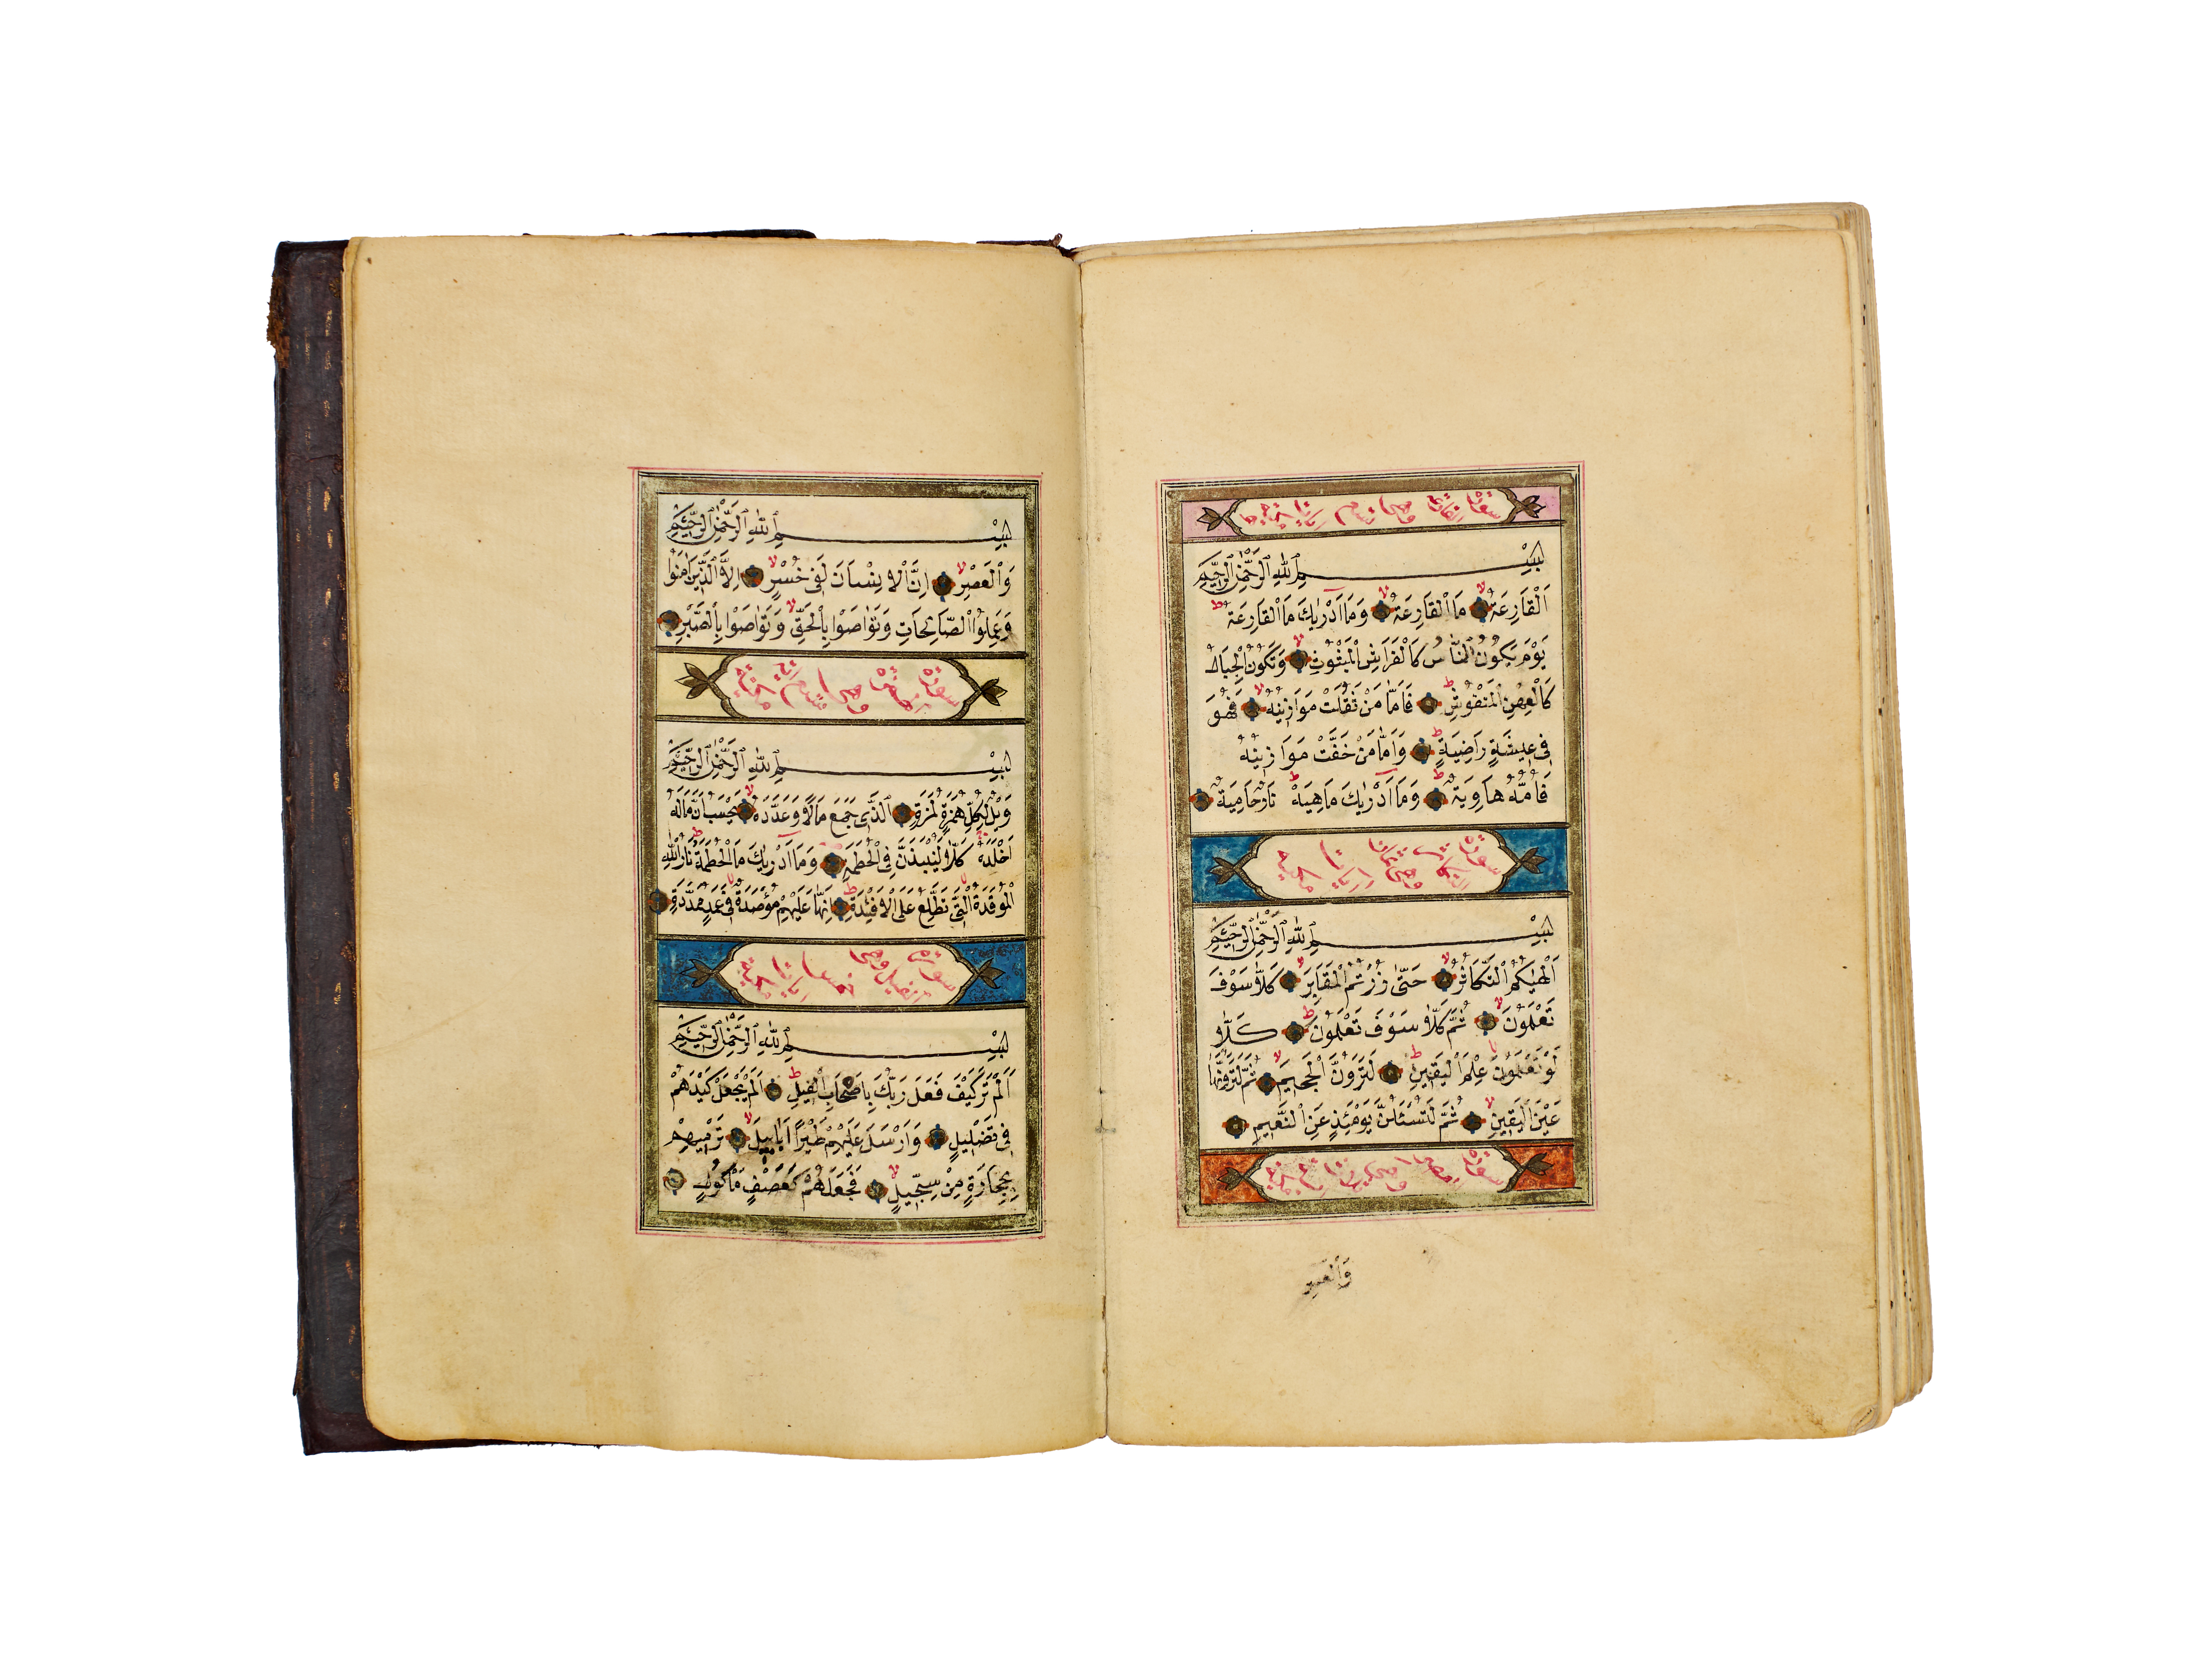 سورة القارعة وهى تسع ايات مكية
بِسْمِ اللّٰهِ الرَّحْمٰنِ الرَّحِيمِ
اَلْقَارِعَةُ مَا الْقَارِعَةُ وَمَا اَدْرٰيكَ مَا الْقَارِعَةُ
يَوْمَ يَكُونُ النَّاسُ كَالْفَرَاشِ الْمَبْثُوثِ وَتَكُونُ الْجِبَالُ
كَالْعِهْنِ الْمَنْفُوشِ فَاَمَّا مَنْ ثَقُلَتْ مَوَازِينُهُ فَهُوَ
فِى عِيشَةٍ رَاضِيَةٍ وَاَمَّا مَنْ خَفَّتْ مَوَازِينُهُ
فَاُمُّهُ هَاوِيَةٌ وَمَا اَدْرٰيكَ مَاهِيَهْ نَارٌ حَامِيَةٌ
سورة التكاثر وهى ثمان ايات مكية
بِسْمِ اللّٰهِ الرَّحْمٰنِ الرَّحِيمِ
اَلْهٰيكُمُ التَّكَاثُرُ حَتّٰى زُرْتُمُ الْمَقَابِرَ كَلَّا سَوْفَ
تَعْلَمُونَ ثُمَّ كَلَّا سَوْفَ تَعْلَمُونَ كَلَّا
لَوْ تَعْلَمُونَ عِلْمَ الْيَقِينِ لَتَرَوُنَّ الْجَحِيمَ ثُمَّ لَتَرَوُنَّهَا
عَيْنَ الْيَقِينِ ثُمَّ لَتُسْئَلُنَّ يَوْمَئِذٍ عَنِ النَّعِيمِ
سورة العصر وهى ثلاث ايات مكية
وَالْعَصْرِ
بِسْمِ اللّٰهِ الرَّحْمٰنِ الرَّحِيمِ
وَالْعَصْرِ اِنَّ الْاِنْسَانَ لَفِى خُسْرٍ اِلَّا الَّذِينَ اٰمَنُوا
وَعَمِلُوا الصَّالِحَاتِ وَتَوَاصَوْا بِالْحَقِّ وَتَوَاصَوْا بِالصَّبْرِ
سورة الهمزة وهى تسع ايات مكية
بِسْمِ اللّٰهِ الرَّحْمٰنِ الرَّحِيمِ
وَيْلٌ لِكُلِّ هُمَزَةٍ لُمَزَةٍ اَلَّذِى جَمَعَ مَالًا وَعَدَّدَهُ يَحْسَبُ اَنَّ مَالَهُ
اَخْلَدَهُ كَلَّا لَيُنْبَذَنَّ فِى الْحُطَمَةِ وَمَا اَدْرٰيكَ مَا الْحُطَمَةُ نَارُ اللّٰهِ
الْمُوقَدَةُ الَّتِى تَطَّلِعُ عَلَى الْاَفْئِدَةِ اِنَّهَا عَلَيْهِمْ مُؤْصَدَةٌ فِى عَمَدٍ مُمَدَّدَةٍ
سورة الفيل وهى خمس ايات مكية
بِسْمِ اللّٰهِ الرَّحْمٰنِ الرَّحِيمِ
اَلَمْ تَرَ كَيْفَ فَعَلَ رَبُّكَ بِاَصْحَابِ الْفِيلِ اَلَمْ يَجْعَلْ كَيْدَهُمْ
فِى تَضْلِيلٍ وَاَرْسَلَ عَلَيْهِمْ طَيْرًا اَبَابِيلَ تَرْمِيهِمْ
بِحِجَارَةٍ مِنْ سِجِّيلٍ فَجَعَلَهُمْ كَعَصْفٍ مَاْكُولٍ